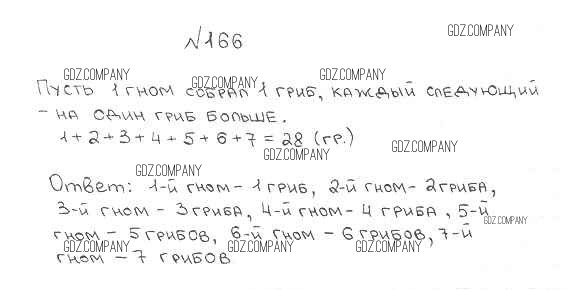 №166
GDZ.COMPANY
GDZ.COMPANY GDZ.COMPANY GDZ.COMPANY
Пусть 1 гном собрал 1 гриб, каждый следующий
- на один гриб больше.
1 + 2 + 3 + 4 + 5 + 6 + 7 = 28 (гр.)
GDZ.COMPANY GDZ.COMPANY
GDZ.COMPANY
Ответ: 1-й гном - 1 гриб, 2-й гном - 2 гриба,
3-й гном - 3 гриба, 4-й гном - 4 гриба, 5-й
GDZ.COMPANY
гном - 5 грибов, 6-й гном - 6 грибов, 7-й
GDZ.COMPANY GDZ.COMPANY GDZ.COMPANY
гном - 7 грибов